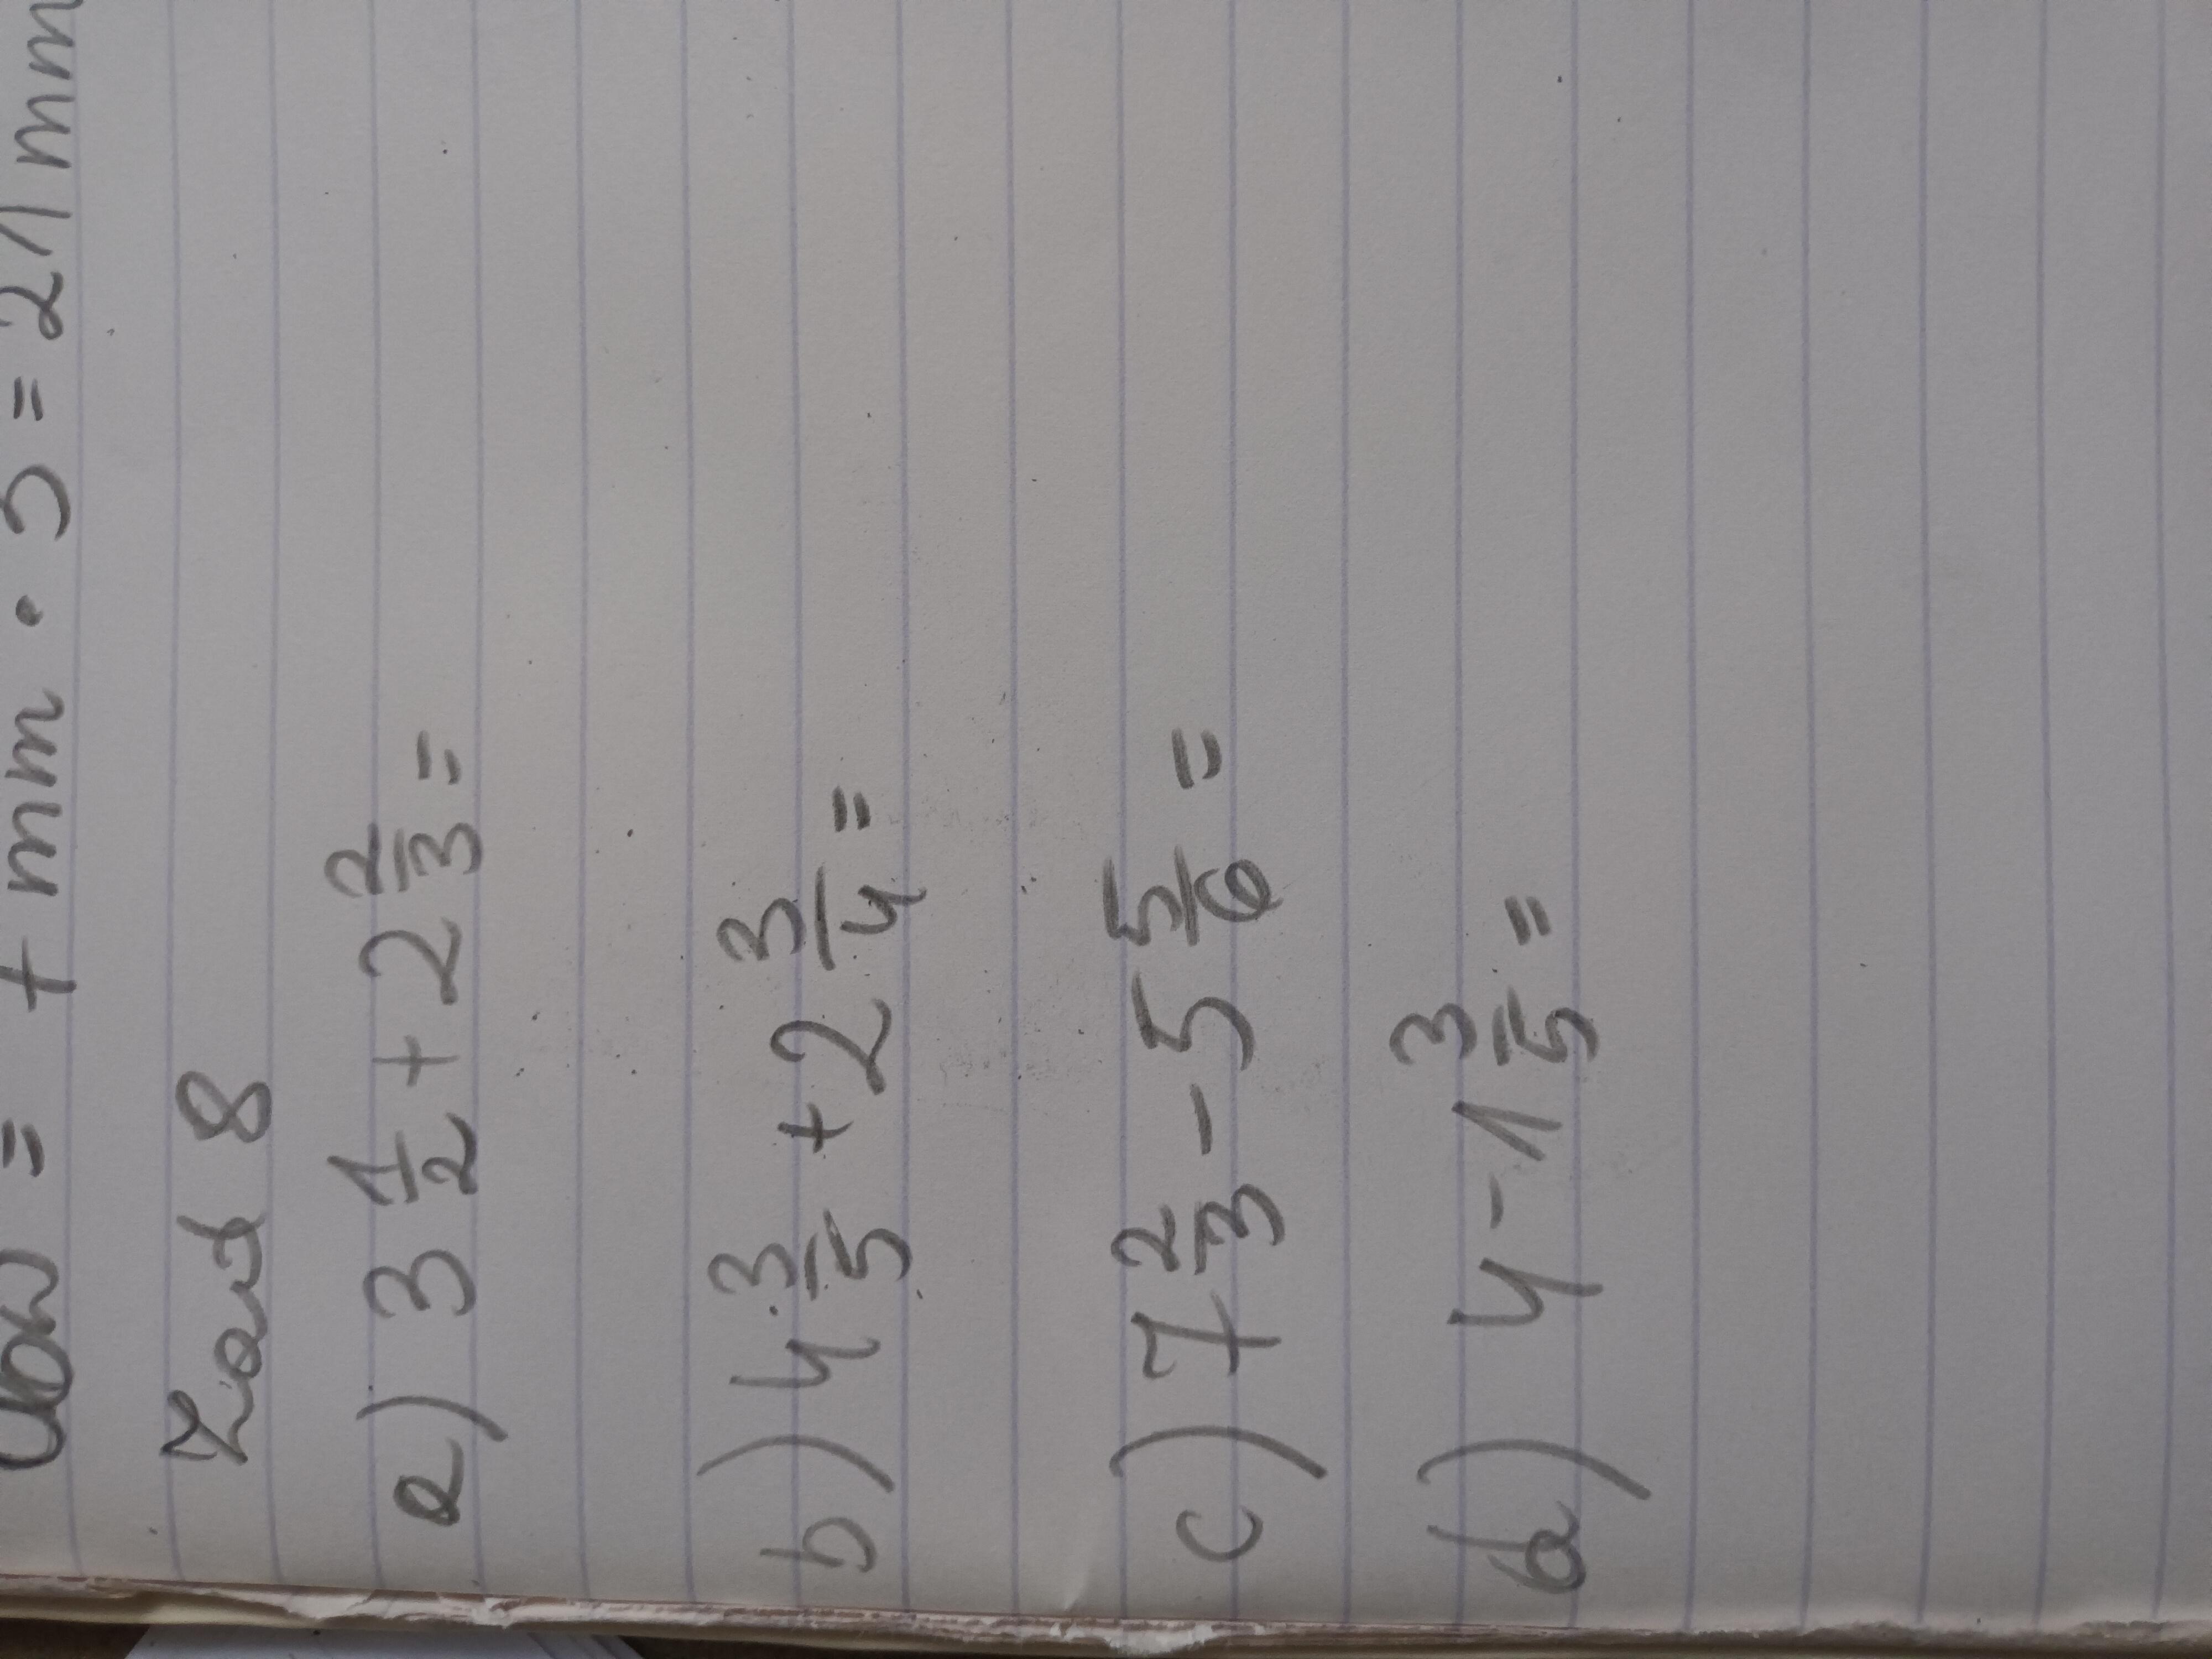 = 7 mm · 3 = 21 mm
Zad 8
a) 3 1/2 + 2 2/3 =
b) 4 3/5 + 2 3/4 =
c) 7 2/3 - 5 5/6 =
d) 4 - 1 3/5 =